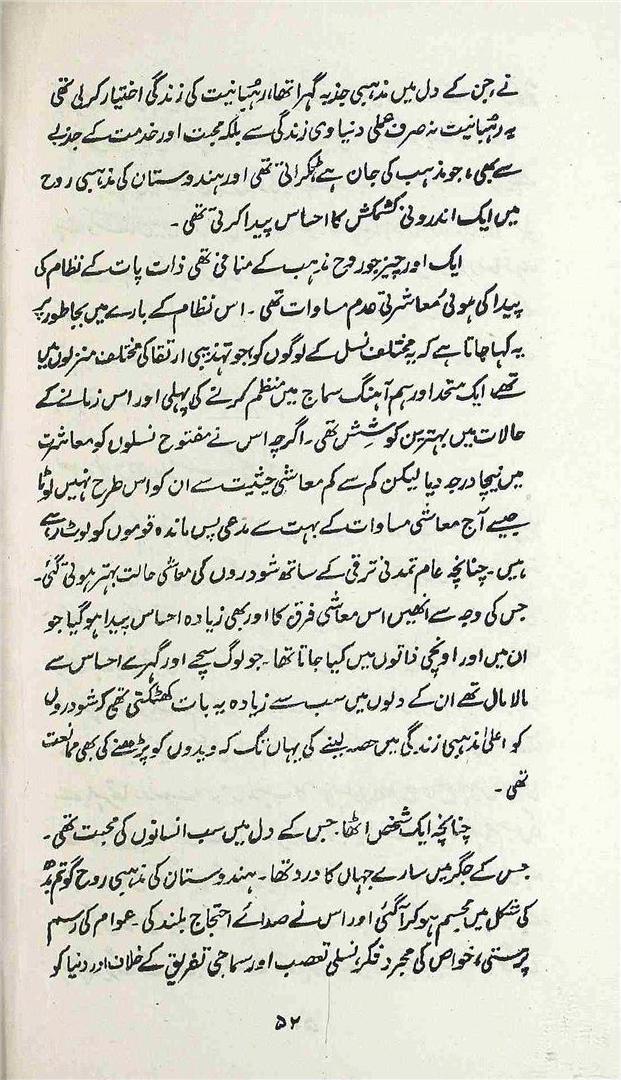 نے، جن کے دل میں مذہبی جذبہ گہرا تھا، رہبانیت کی زندگی اختیار کر لی تھی
یہ رہبانیت نہ صرف عملی دنیاوی زندگی سے بلکہ محبت اور خدمت کے جذبے
سے بھی، جو مذہب کی جان ہے ٹکراتی تھی اور ہندوستان کی مذہبی روح
میں ایک اندرونی کشمکش کا احساس پیدا کرتی تھی۔
ایک اور چیز جو روحِ مذہب کے منافی تھی ذات پات کے نظام کی
پیدا کی ہوئی معاشرتی عدم مساوات تھی۔ اس نظام کے بارے میں بجا طور پر
یہ کہا جاتا ہے کہ یہ مختلف نسل کے لوگوں کو، جو تہذیبی ارتقا کی مختلف منزلوں میں
تھے، ایک متحد اور ہم آہنگ سماج میں منظم کرنے کی پہلی اور اس زمانے کے
حالات میں بہترین کوشش تھی۔ اگرچہ اس نے مفتوح نسلوں کو معاشرت
میں نیچا درجہ دیا لیکن کم سے کم معاشی حیثیت سے ان کو اس طرح نہیں لوٹا
جیسے آج معاشی مساوات کے بہت سے مدعی پس ماندہ قوموں کو لوٹ رہے
ہیں۔ چنانچہ عام تمدنی ترقی کے ساتھ شودروں کی معاشی حالت بہتر ہوتی گئی۔
جس کی وجہ سے انھیں اس معاشی فرق کا اور بھی زیادہ احساس پیدا ہوگیا جو
ان میں اور اونچی ذاتوں میں کیا جاتا تھا۔ جو لوگ سچے اور گہرے احساس سے
مالا مال تھے ان کے دلوں میں سب سے زیادہ یہ بات کھٹکتی تھی کہ شودروں
کو اعلیٰ مذہبی زندگی میں حصہ لینے کی یہاں تک کہ ویدوں کو پڑھنے کی بھی ممانعت
تھی۔
چنانچہ ایک شخص اٹھا۔ جس کے دل میں سب انسانوں کی محبت تھی۔
جس کے جگر میں سارے جہاں کا درد تھا۔ ہندوستان کی مذہبی روح گوتم بدھ
کی شکل میں مجسم ہو کر آگئی اور اس نے صدائے احتجاج بلند کی۔ عوام کی رسم
پرستی، خواص کی مجرد فکر، نسلی تعصب اور سماجی تفریق کے خلاف اور دنیا کو
۵۲